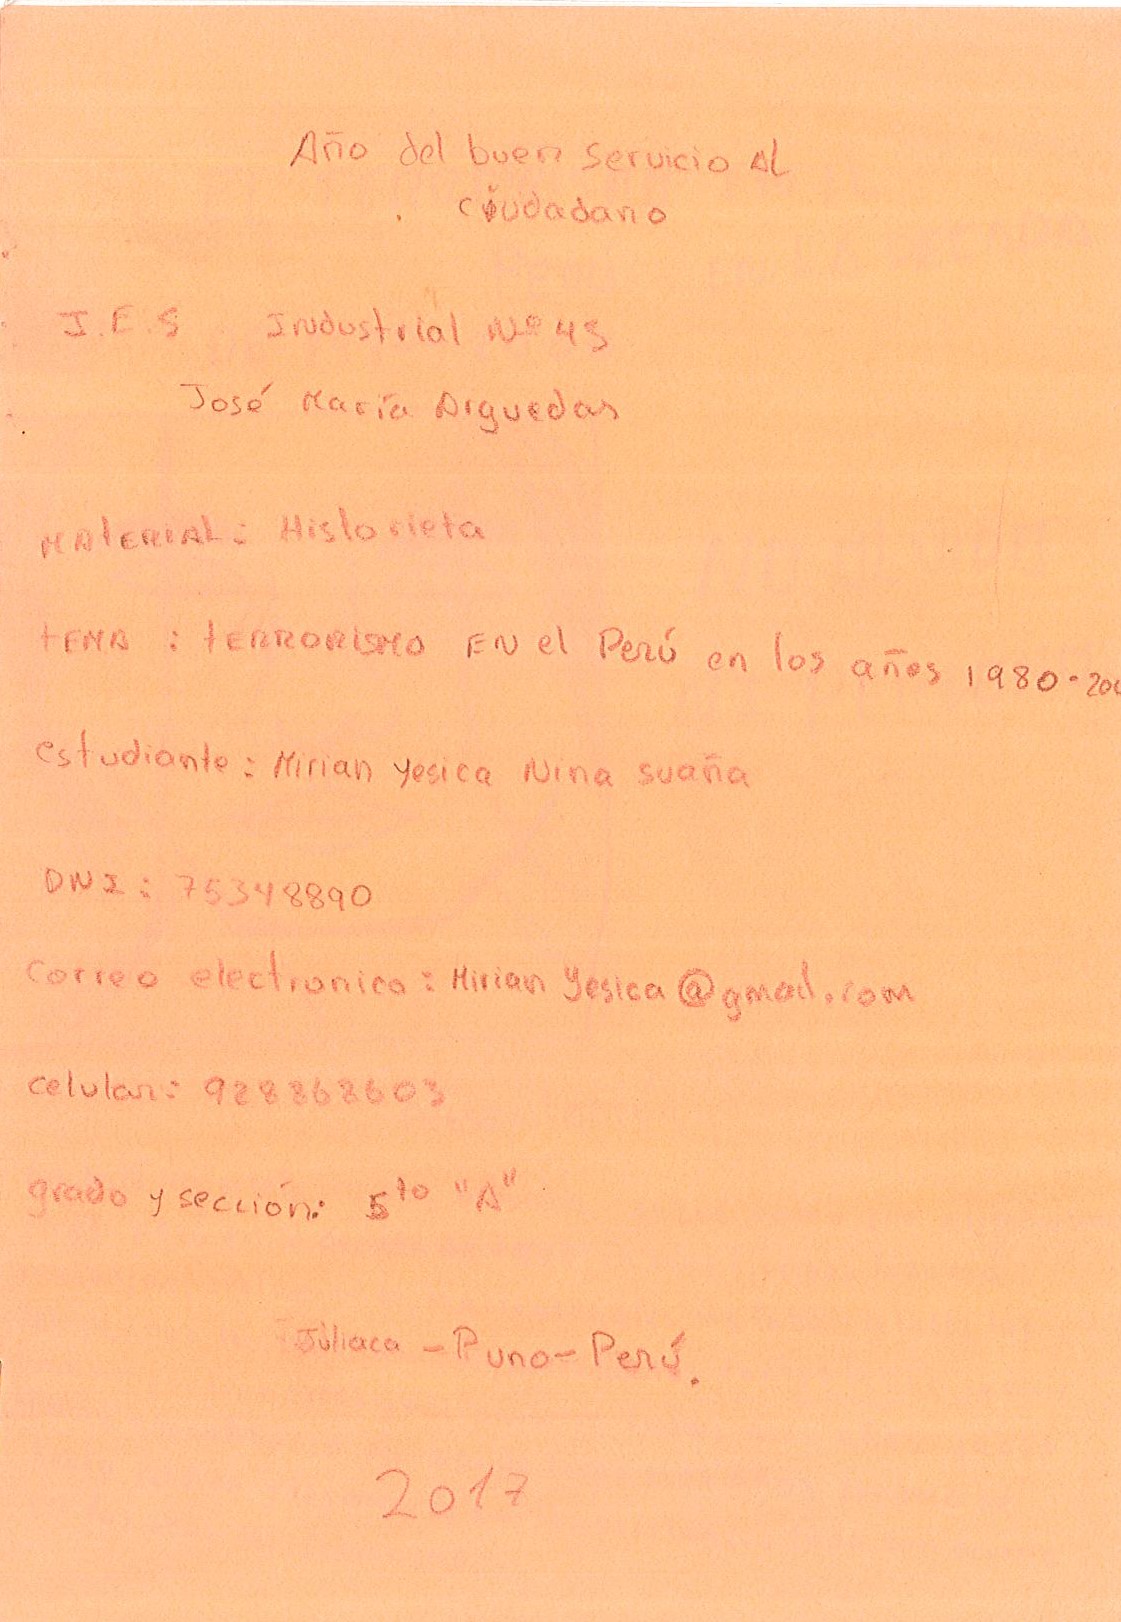 Año del buen servicio Al
ciudadano
I.E.S Industrial Nº 45
José María Arguedas
MATERIAL: Historieta
tEMA : tERRORISMO EN el Perú en los años 1980-200
estudiante: Mirian yesica Nina suaña
DNI: 75348890
Correo electronico: Mirian Yesica@gmail.com
celular: 928868603
grado y sección: 5to "A"
Júliaca - Puno - Perú.
2017